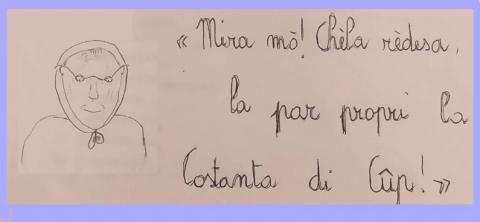 « Mira mò! Chèla rèdesa,
la par propri la
Costanta di Cûp! »